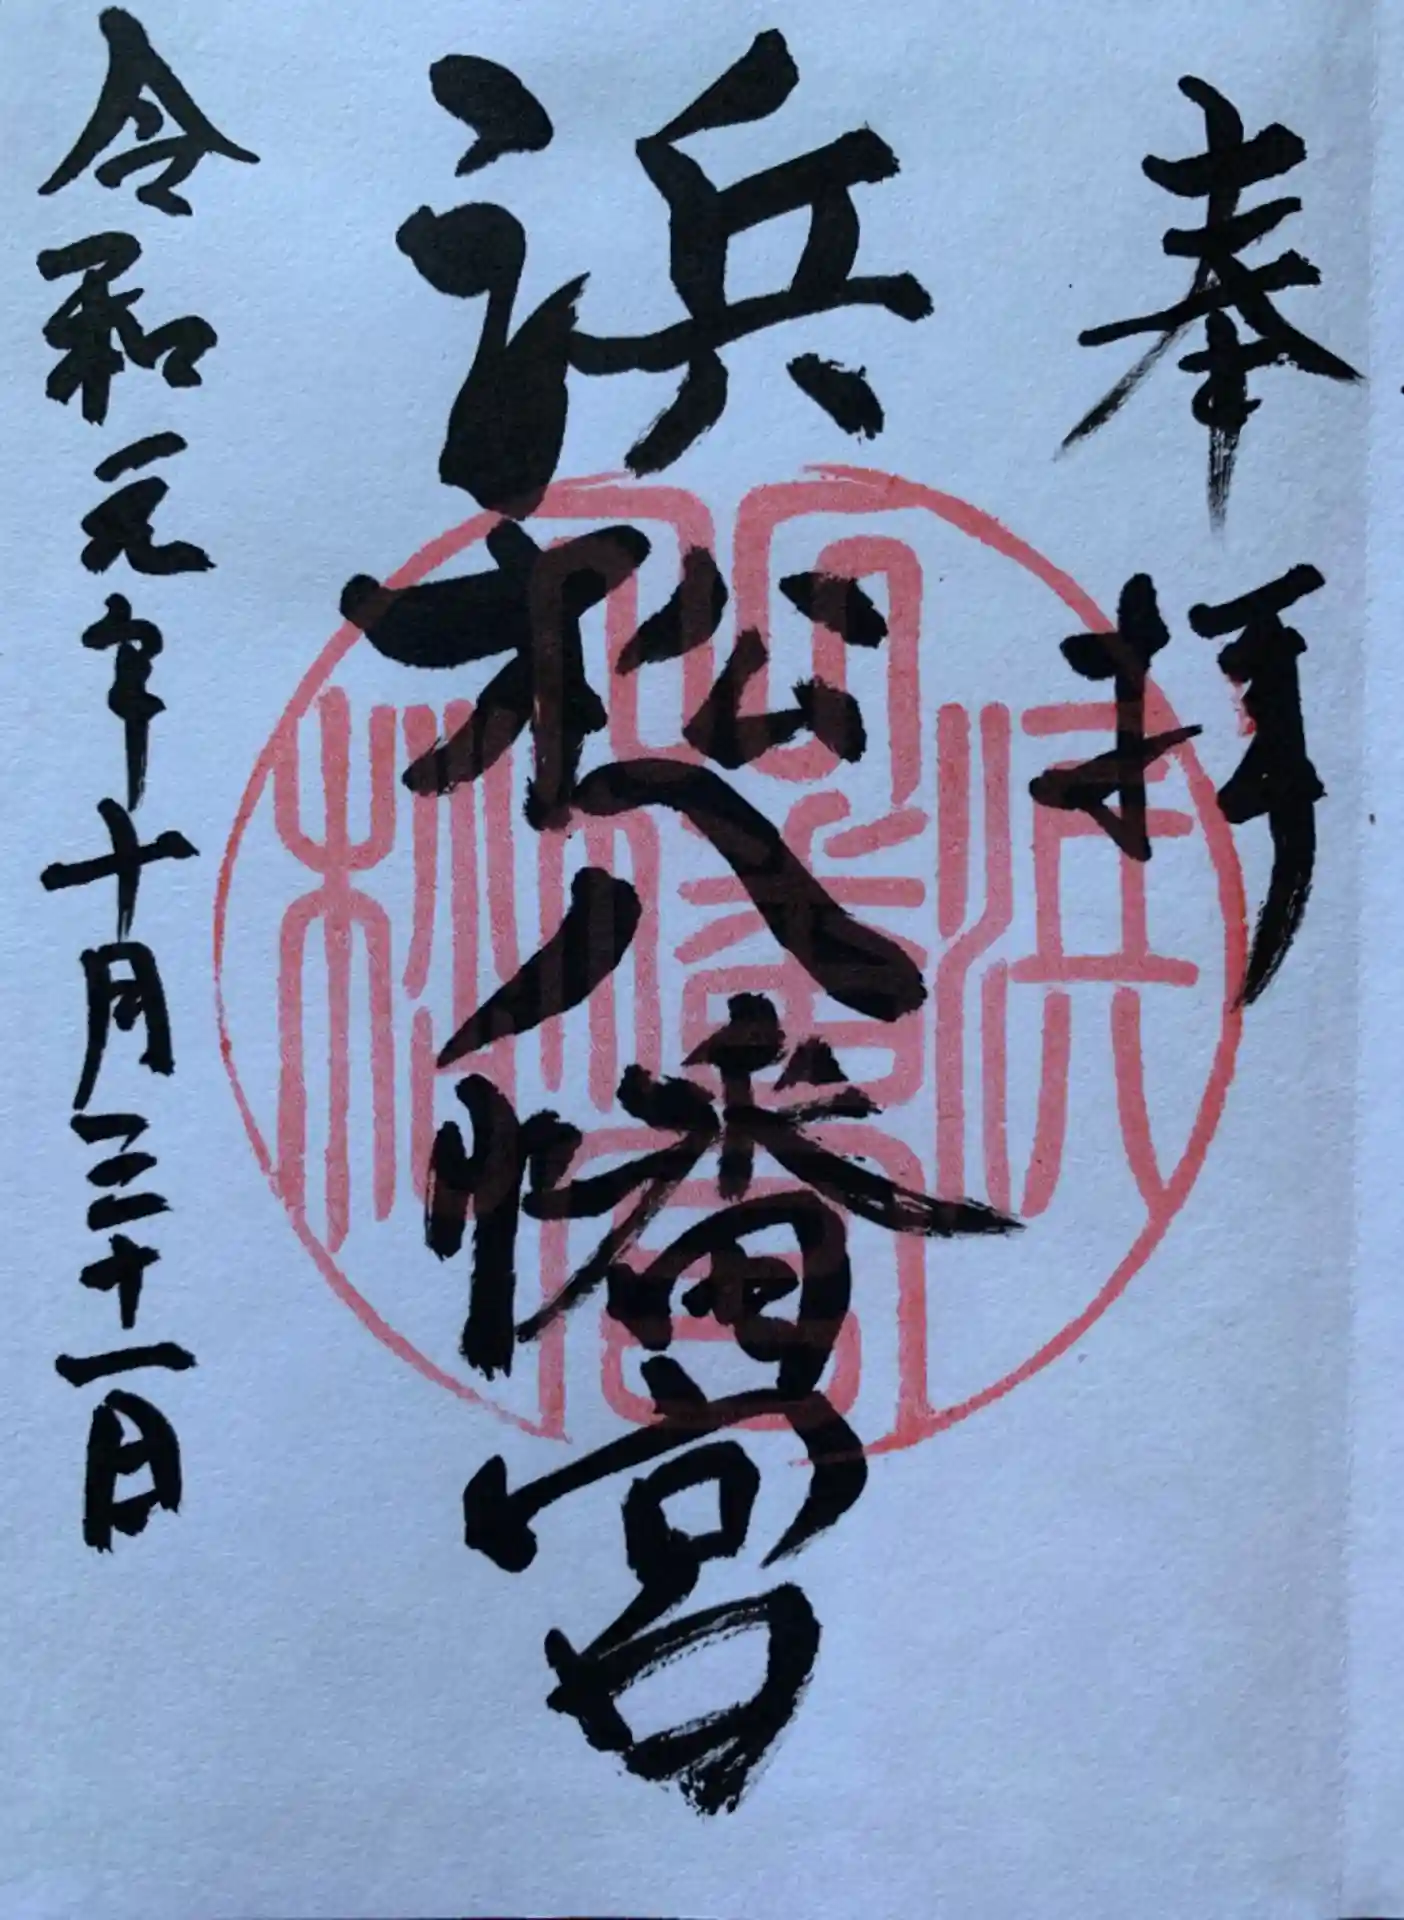 奉拝
浜松八幡宮
令和元年十月三十一日
浜松
八幡宮